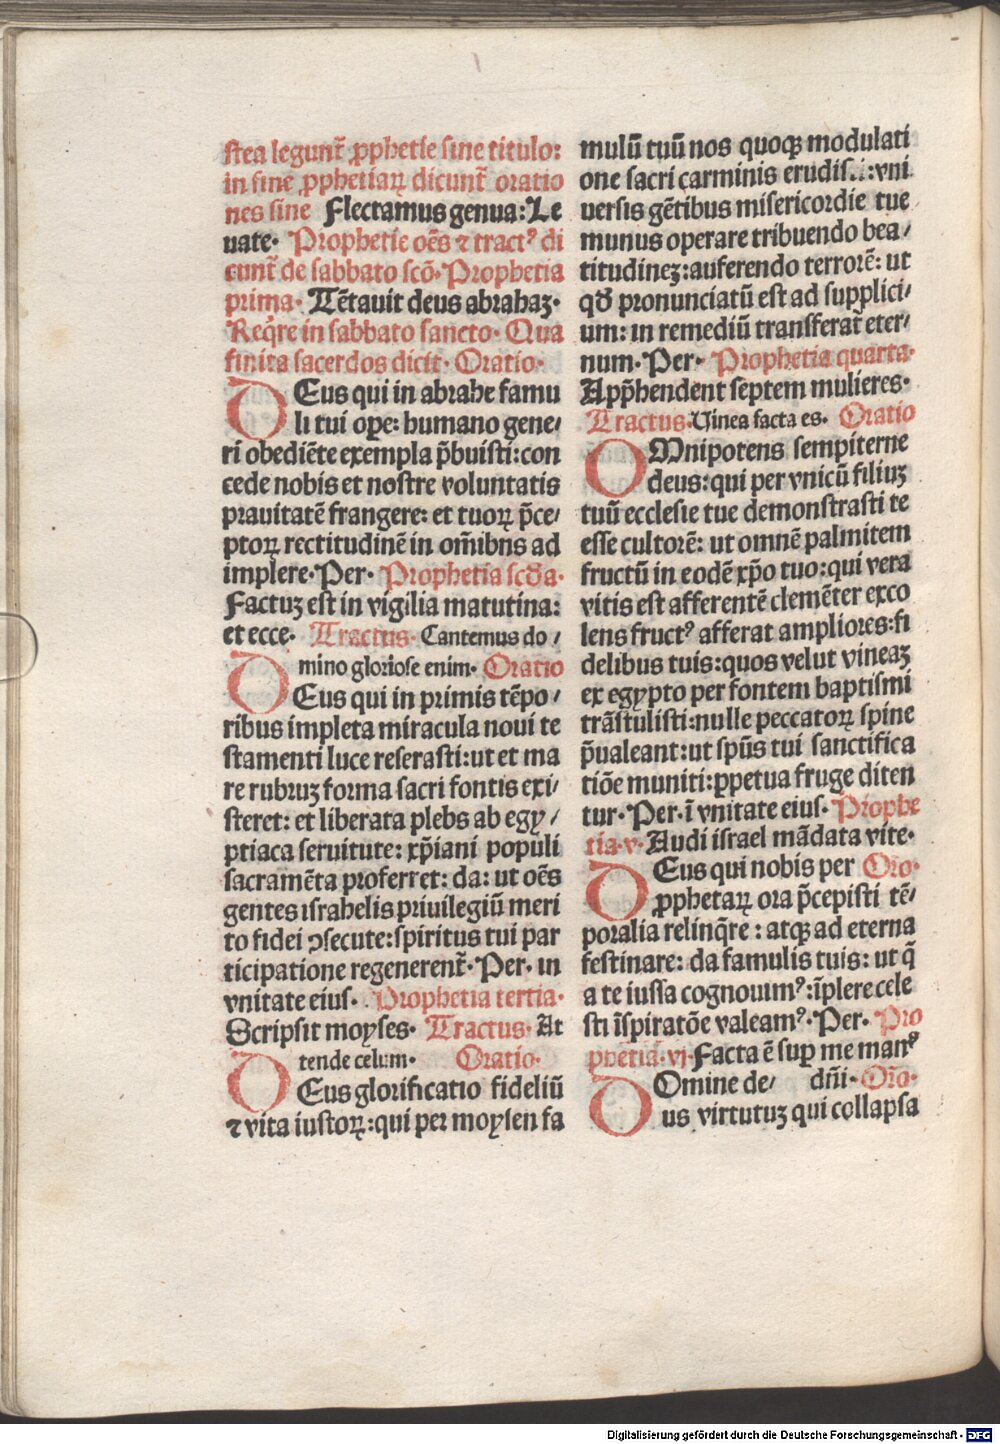 stea legunt̃ ꝓphetie sine titulo:
in fine ꝓphetiaꝝ dicunt̃ oratio
nes sine Flectamus genua: Le
uate· Prophetie oẽs ⁊ tractꝰ di
cunt̃ de sabbato scõ· Prophetia
prima· Tẽtauit deus abrahaꝫ·
Reqͥre in sabbato sancto· Qua
finita sacerdos dicit· Oratio·
DEus qui in abrahe famu
li tui oꝑe: humano gene/
ri obediẽte exempla p̃buisti: con
cede nobis et nostre voluntatis
prauitatẽ frangere: et tuoꝝ p̃ce/
ptoꝝ rectitudinẽ in om̃ibns ad
implere· Per· Prophetia scďa·
Factuꝫ est in vigilia matutina:
et ecce· Tractus· Cantemus do/
mino gloriose enim· Oratio
DEus qui in primis tẽpo/
ribus impleta miracula noui te
stamenti luce reserasti: ut et ma
re rubruꝫ forma sacri fontis exi/
steret: et liberata plebs ab egy/
ptiaca seruitute: xp̃iani populi
sacramẽta proferret: da: ut oẽs
gentes israhelis priuilegiũ meri
to fidei ꝯsecute: spiritus tui par
ticipatione regenerent̃· Per· in
vnitate eius· Prophetia tertia·
Scripsit moyses· Tractus· At
tende celum· Oratio·
DEus glorificatio fideliũ
⁊ vita iustoꝝ: qui per moysen fa
mulũ tuũ nos quoqꝫ modulati
one sacri carminis erudis..: vni
uersis gẽtibus misericordie tue
munus operare tribuendo bea/
titudineꝫ: auferendo terrorẽ: ut
qď pronunciatũ est ad supplici/
um: in remediũ transferat̃ eter/
num· Per· Prophetia quarta·
App̃hendent septem mulieres·
Tractus· Uinea facta es· Oratio
OMnipotens sempiterne
deus: qui per vnicũ filiuꝫ
tuũ ecclesie tue demonstrasti te
esse cultorẽ: ut omnẽ palmitem
fructũ in eodẽ xp̃o tuo: qui vera
vitis est afferentẽ clemẽter exco
lens fructꝰ afferat ampliores: fi
delibus tuis: quos velut vineaꝫ
ex egypto per fontem baptismi
trãstulisti: nulle peccatoꝝ spine
p̃ualeant: ut spũs tui sanctifica
tiõe muniti: ꝑpetua fruge diten
tur· Per· ĩ vnitate eius· Prophe
tia· v· Audi israel mãdata vite·
DEus qui nobis per Oro·
ꝓphetaꝝ ora p̃cepisti tẽ/
poralia relinqͥre: atqꝫ ad eterna
festinare: da famulis tuis: ut q̃
a te iussa cognouimꝰ: ĩplere cele
sti ĩspiratõe valeamꝰ· Per· Pro
phetia· vj· Facta ẽ suꝑ me manꝰ
DOmine de/ dñi· Oro·
us virtutuꝫ qui collapsa
Digitalisierung gefördert durch die Deutsche Forschungsgemeinschaft - DFG